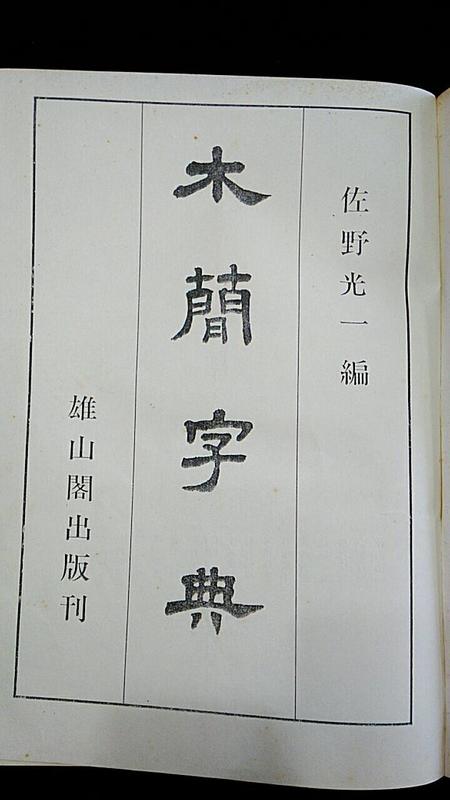 佐野光一編
木簡字典
雄山閣出版刊